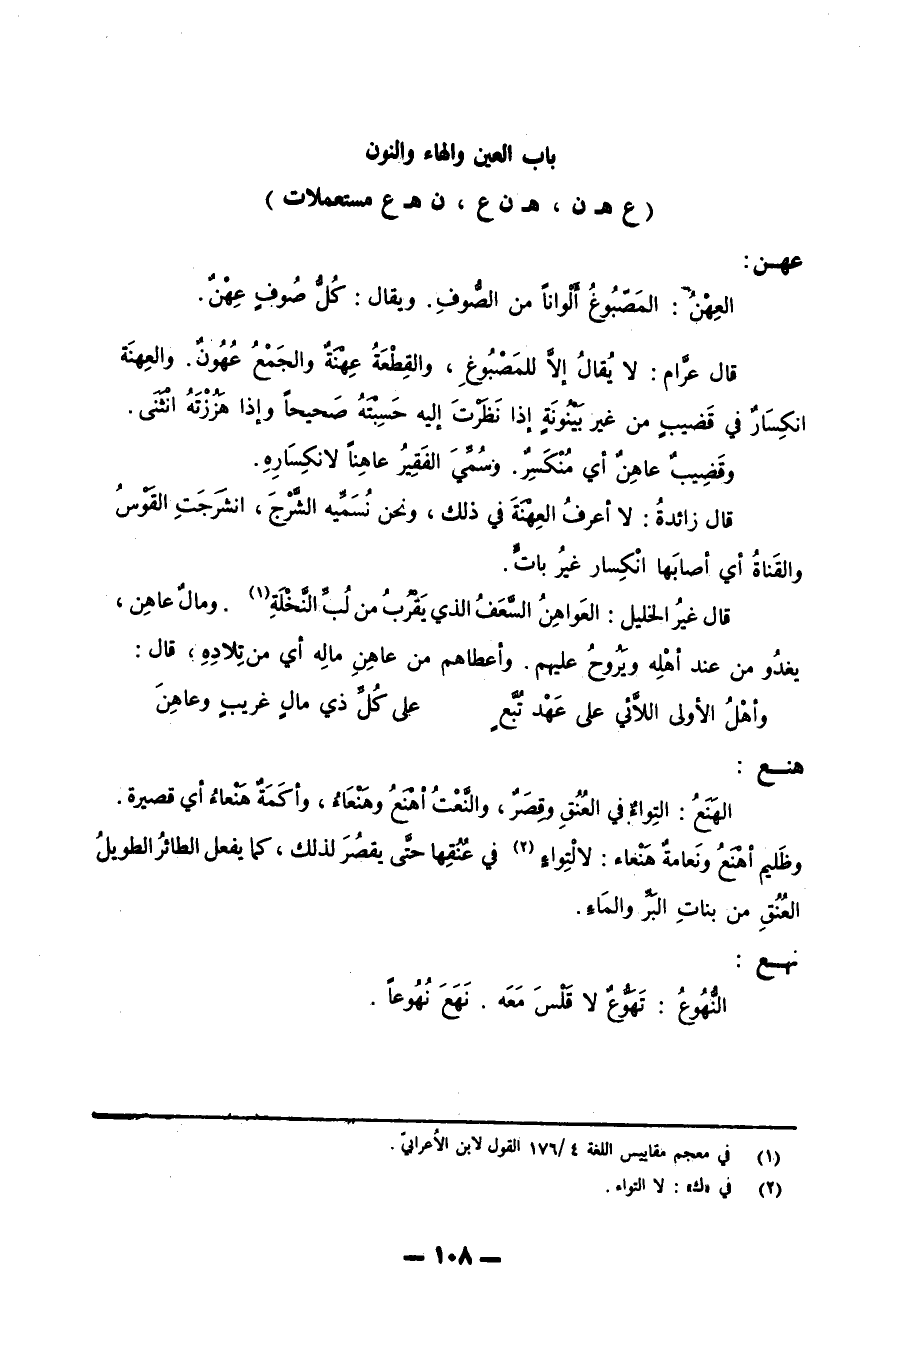 باب العين والهاء والنون
( ع هـ ن ، هـ ن ع ، ن هـ ع مستعملات )
عهـن :
العِهْنُ : المَصْبُوغُ أَلْواناً من الصُّوفِ. ويقال : كُلُّ صُوفٍ عِهْنٌ.
قال عرَّام : لا يُقالُ إلاَّ للمَصْبُوغِ ، والقِطْعَةُ عِهْنَةٌ والجَمْعُ عُهُونٌ. والعِهنَة
انكِسَارٌ في قَضيبٍ من غير بَيْنُونَةٍ إذا نَظَرْتَ إليه حَسِبْتَهُ صَحيحاً وإذا هَزَزْتَهُ انْثَنَى.
وقَضِيبٌ عاهِنٌ أي مُنْكَسِرٌ. وسُمِّيَ الفَقِيرُ عاهِناً لانكِسَارِهِ.
قال زائدةُ : لا أعرفُ العِهْنَةَ في ذلك ، ونحن نُسَمِّيه الشَّرْجَ ، انشَرَجَتِ القَوْسُ
والقَناةُ أي أصابَها انْكِسار غيرُ باتٍّ.
قال غيرُ الخليل : العَواهِنُ السَّعَفُ الذي يَقْرُبُ من لُبِّ النَّخْلَةِ(١) . ومالٌ عاهِن ،
يغدُو من عند أهْلِه ويَرُوحُ عليهم. وأعطاهم من عاهِنِ مالِه أي من تِلادِهِ ، قال :
وأهْلُ الأولى اللاَّئي على عَهْد تُبَّعٍ على كُلِّ ذي مالٍ غريبٍ وعاهِنَ
هنـع :
الهَنَعُ : التِواءٌ في العُنُقِ وقِصَرٌ ، والنَّعْتُ أهْنَعُ وهَنْعَاءُ ، وأكَمَةٌ هَنْعاءُ أي قصيرة.
وظَليم أهْنَعُ ونَعامةٌ هَنْعاء : لالْتِواءٍ (٢) في عُنُقِها حتَّى يقصُرَ لذلك ، كما يفعل الطائرُ الطويلُ
العُنُقِ من بناتِ البَرِّ والمَاءِ.
نهـع :
النُّهُوعُ : تَهَوُّعٌ لا قَلْسَ مَعَه . نَهَعَ نُهُوعاً .
(١) في معجم مقاييس اللغة ٤ /١٧٦ القول لابن الأعرابيّ .
(٢) في «ك» : لا التواء .
– ١٠٨ –